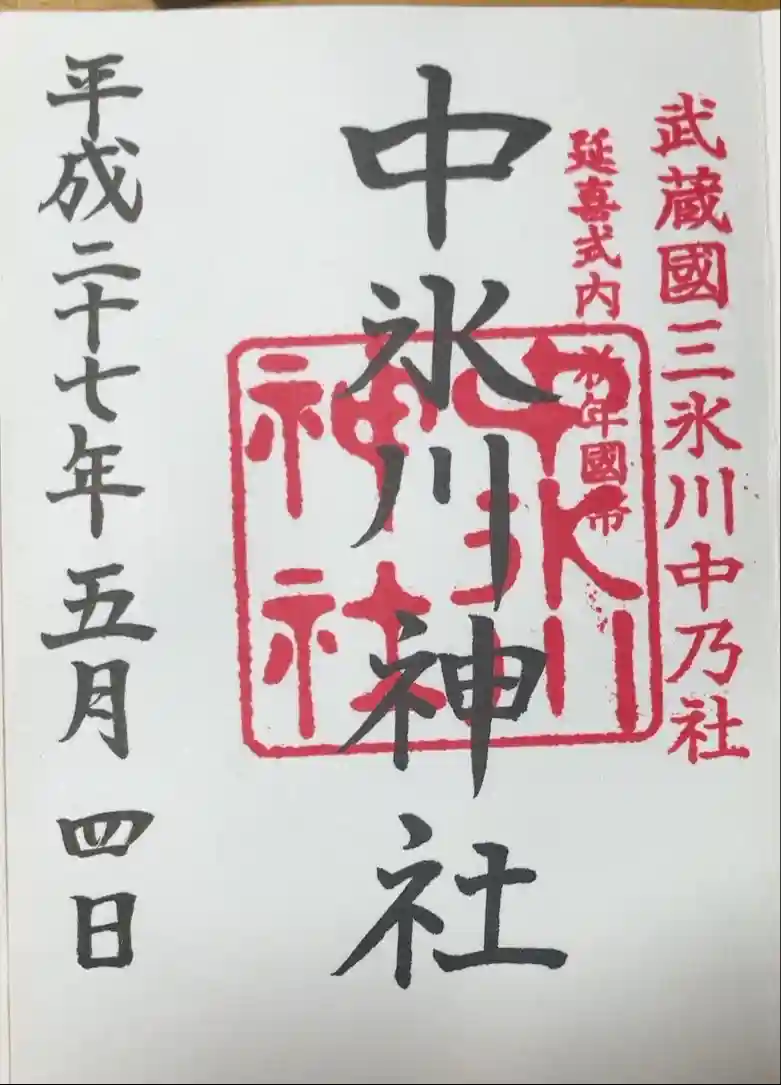 武蔵國三氷川中乃社
延喜式内 祈年國幣
中氷川神社
中氷川
神社
平成二十七年五月四日